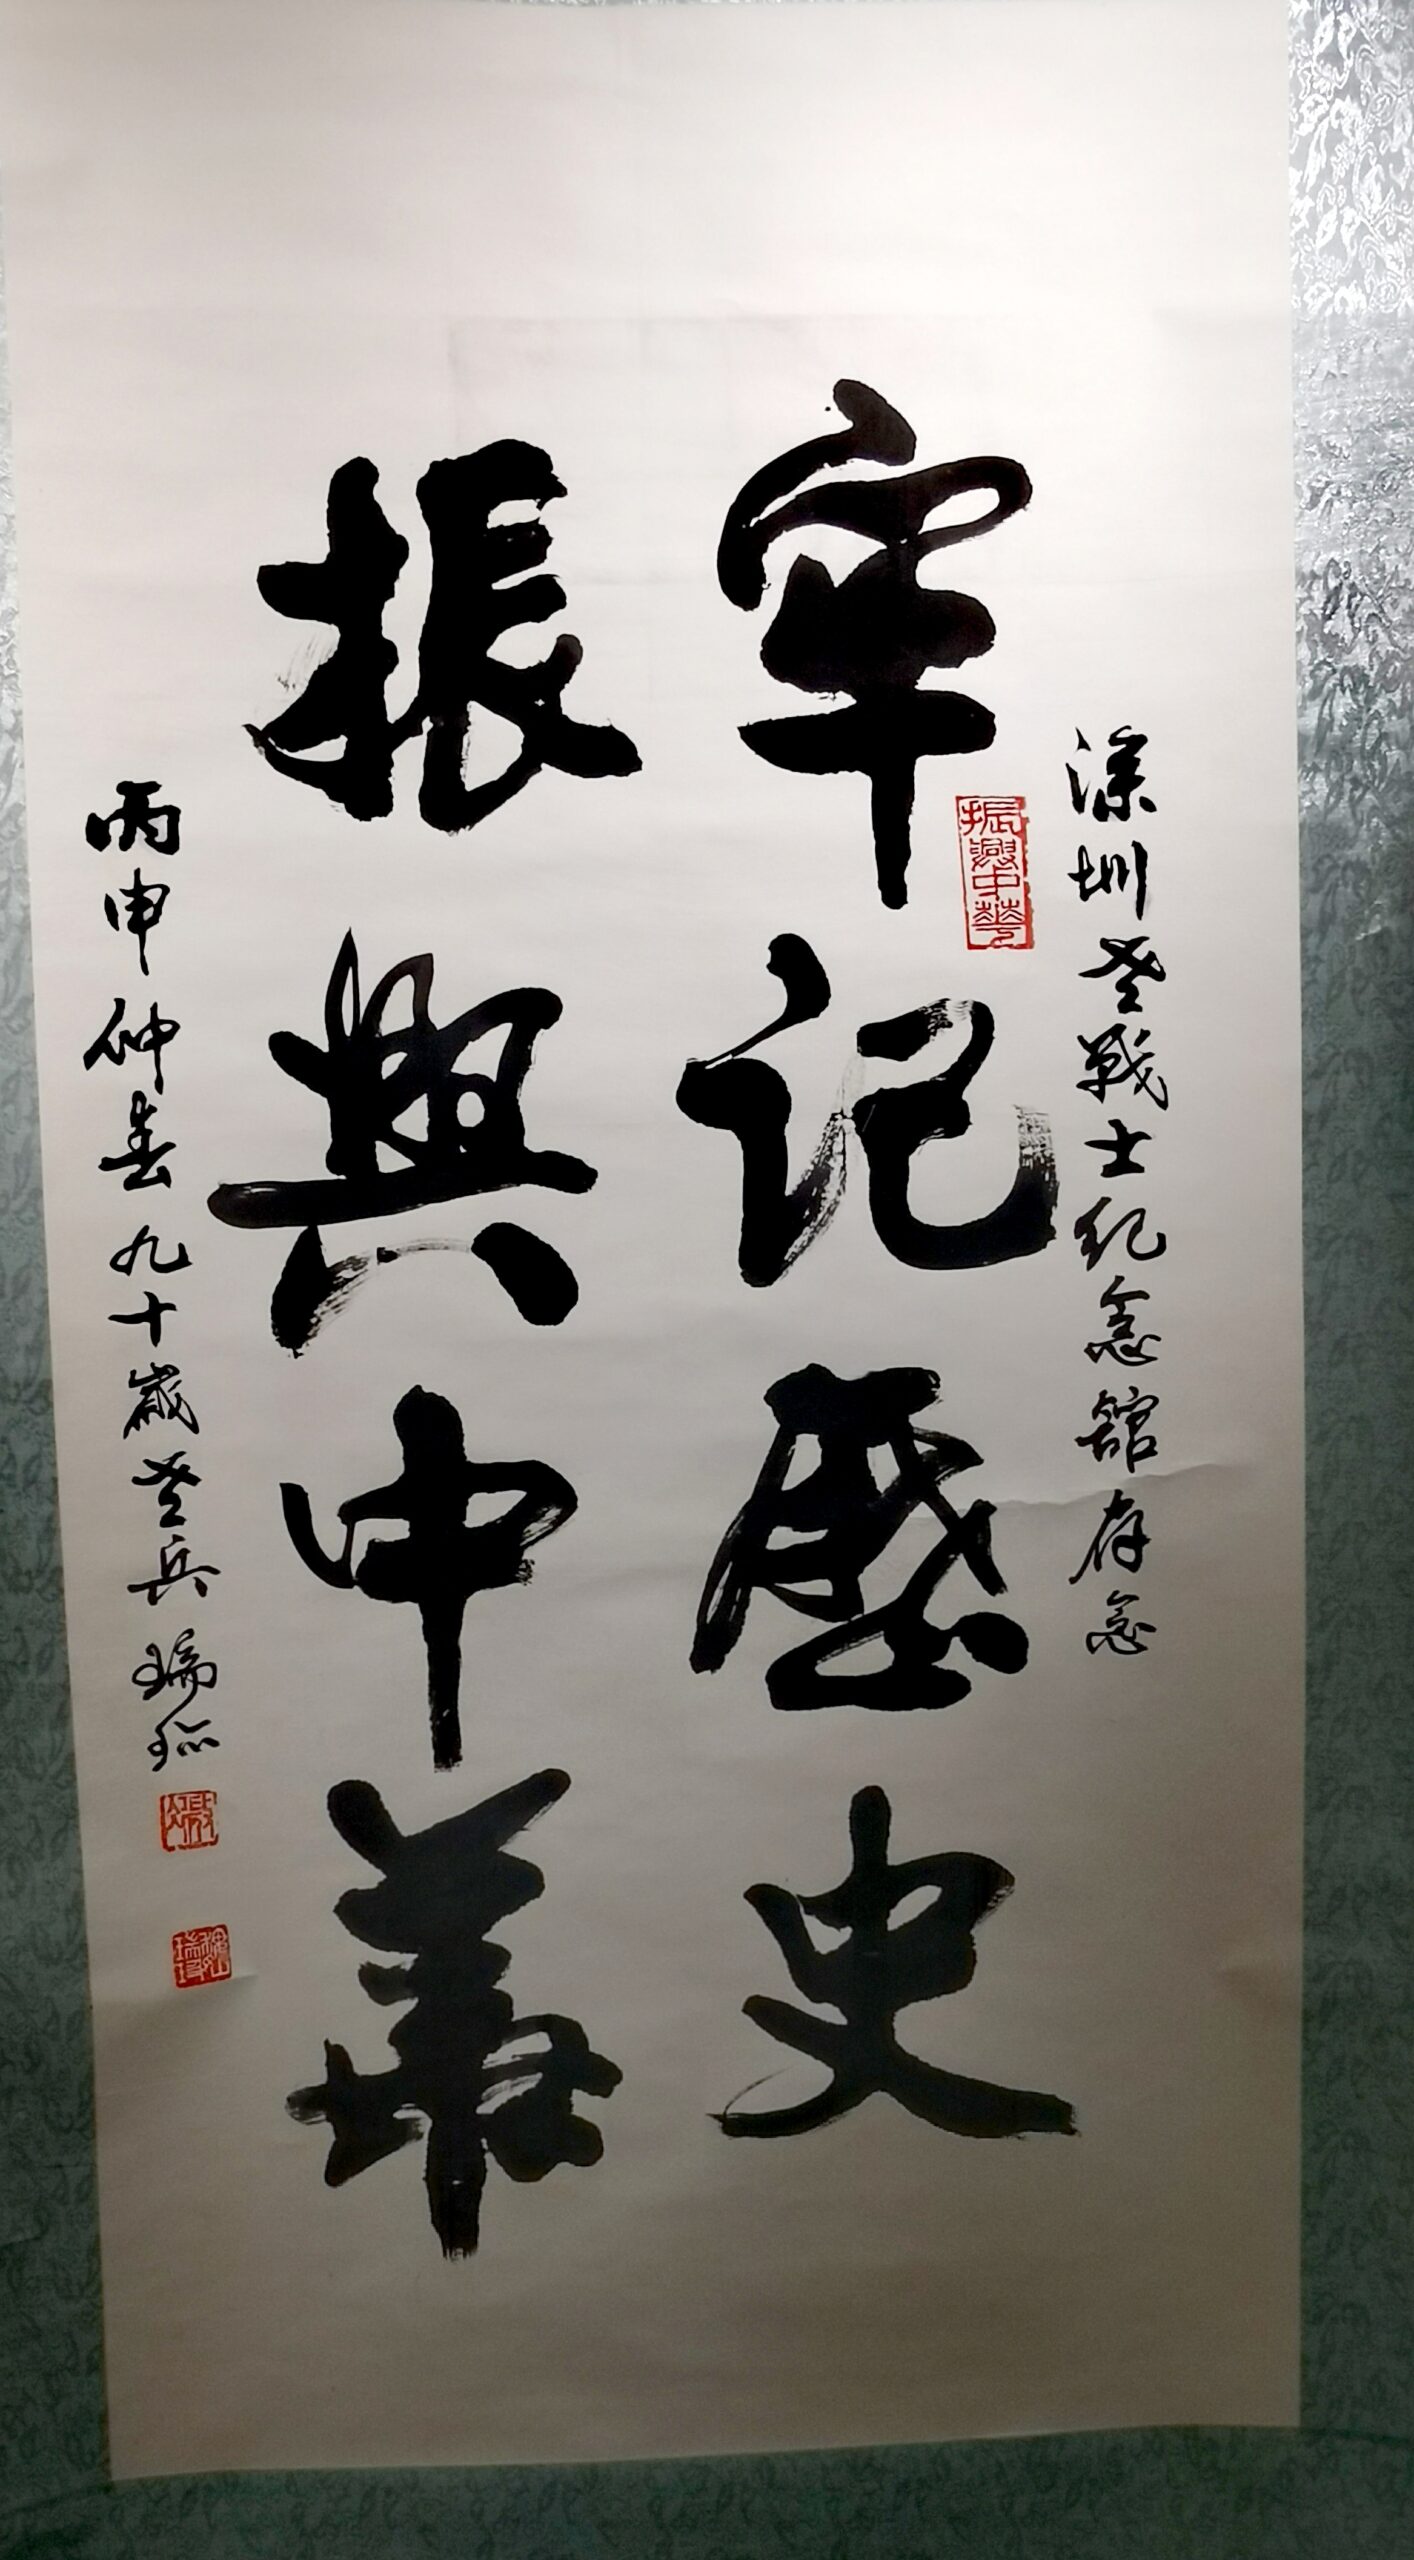 深圳老戰士纪念舘存念
振興中華
牢记歷史
振興中華
丙申仲春九十歲老兵瑞